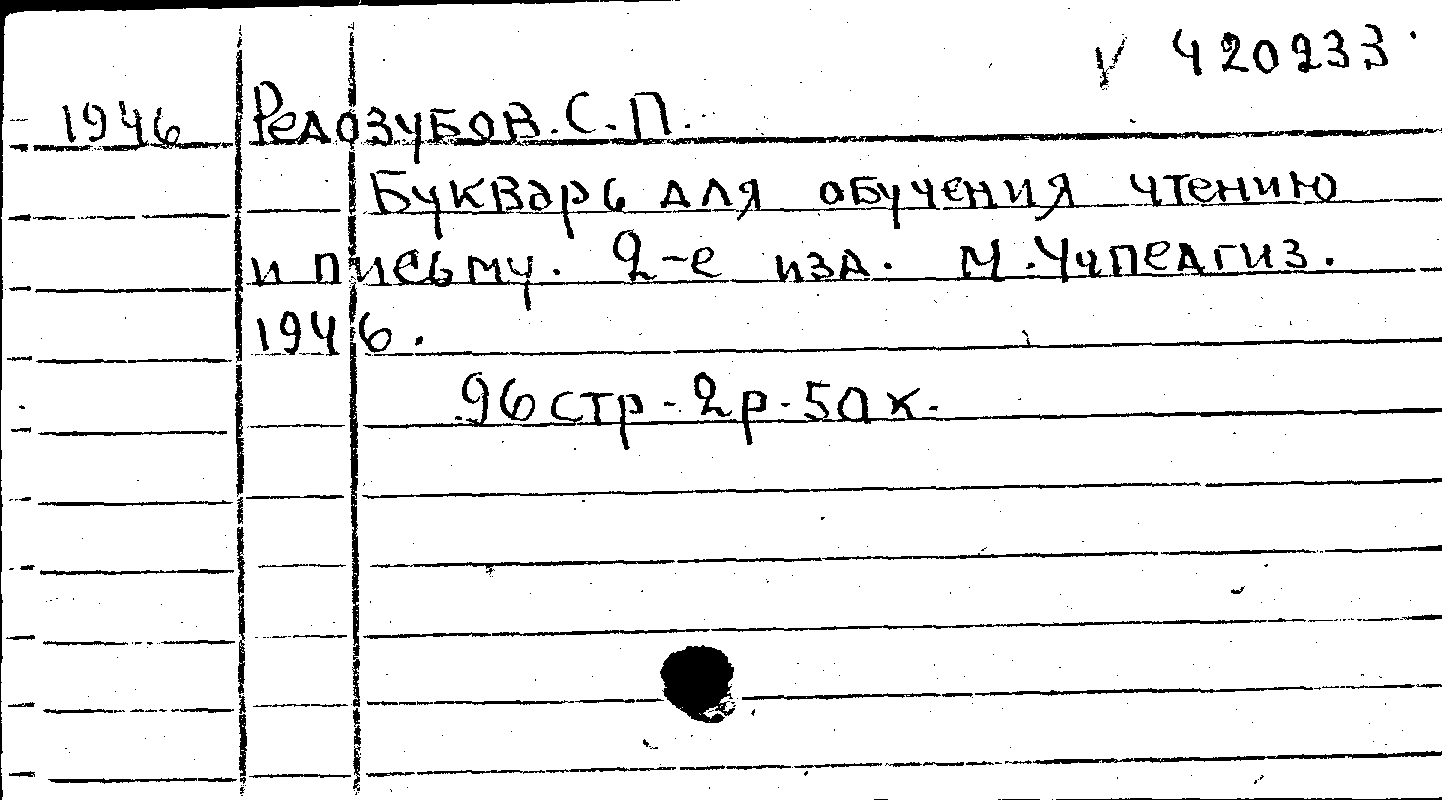 V 420233.
1946 Редозубов. С. П.
Букварь для обучения чтению
и письму. 2-е изд. М. Учпедгиз.
1946.
96 стр. - 2 р. 50 к.